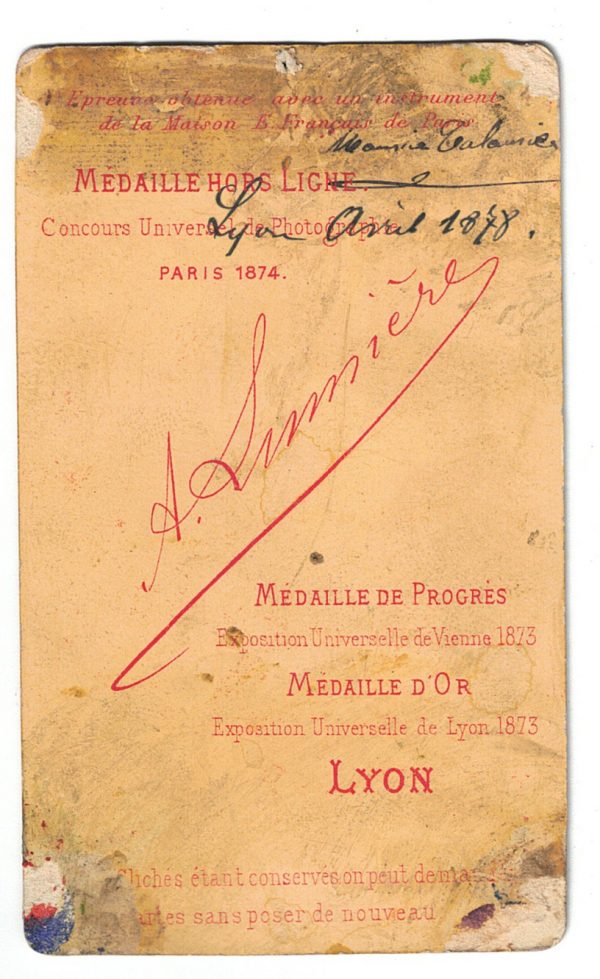 Epreuve obtenue avec un instrument
de la Maison E. Français de Paris
Maurice
MÉDAILLE HORS LIGNE.
Lyon Avril 1878.
Concours Universel de Photographie
PARIS 1874.
A. Lumière
MÉDAILLE DE PROGRÈS
Exposition Universelle de Vienne 1873
MÉDAILLE D'OR
Exposition Universelle de Lyon 1873
LYON
Clichés étant conservés on peut dema
artes sans poser de nouveau